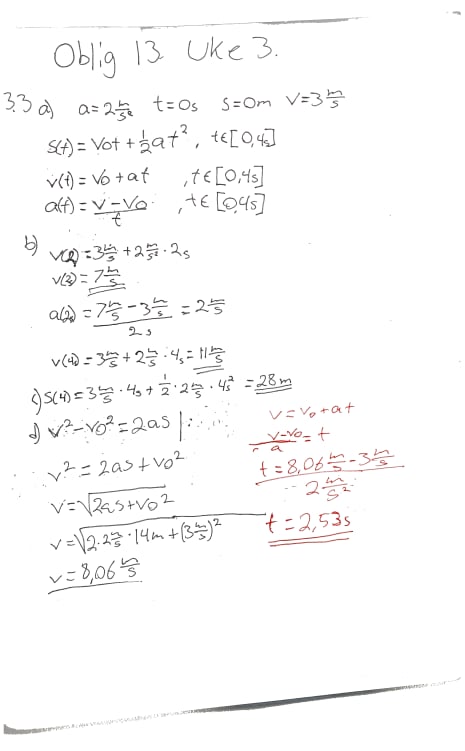 Oblig 13 Uke 3.
3.3 a) a=2 m/s² t=0s s=0m v=3 m/s
s(t) = v₀t + ½at², t∈[0,4s]
v(t) = v₀ + at , t∈[0,4s]
a(t) = (v-v₀)/t , t∈[0,4s]
b) v(2) = 3 m/s + 2 m/s² · 2s
v(2) = 7 m/s
a(2) = (7 m/s - 3 m/s)/2s = 2 m/s
v(4s) = 3 m/s + 2 m/s · 4s = 11 m/s
c) s(4) = 3 m/s · 4s + 1/2 · 2 m/s · 4s² = 28m
d) v² - v₀² = 2as
v² = 2as + v₀²
v = √(2as + v₀²)
v = √(2·2 m/s · 14m + (3 m/s)²)
v = 8,06 m/s
v = v₀ + at
(v-v₀)/a = t
t = (8,06 m/s - 3 m/s)/(2 m/s²)
t = 2,53s